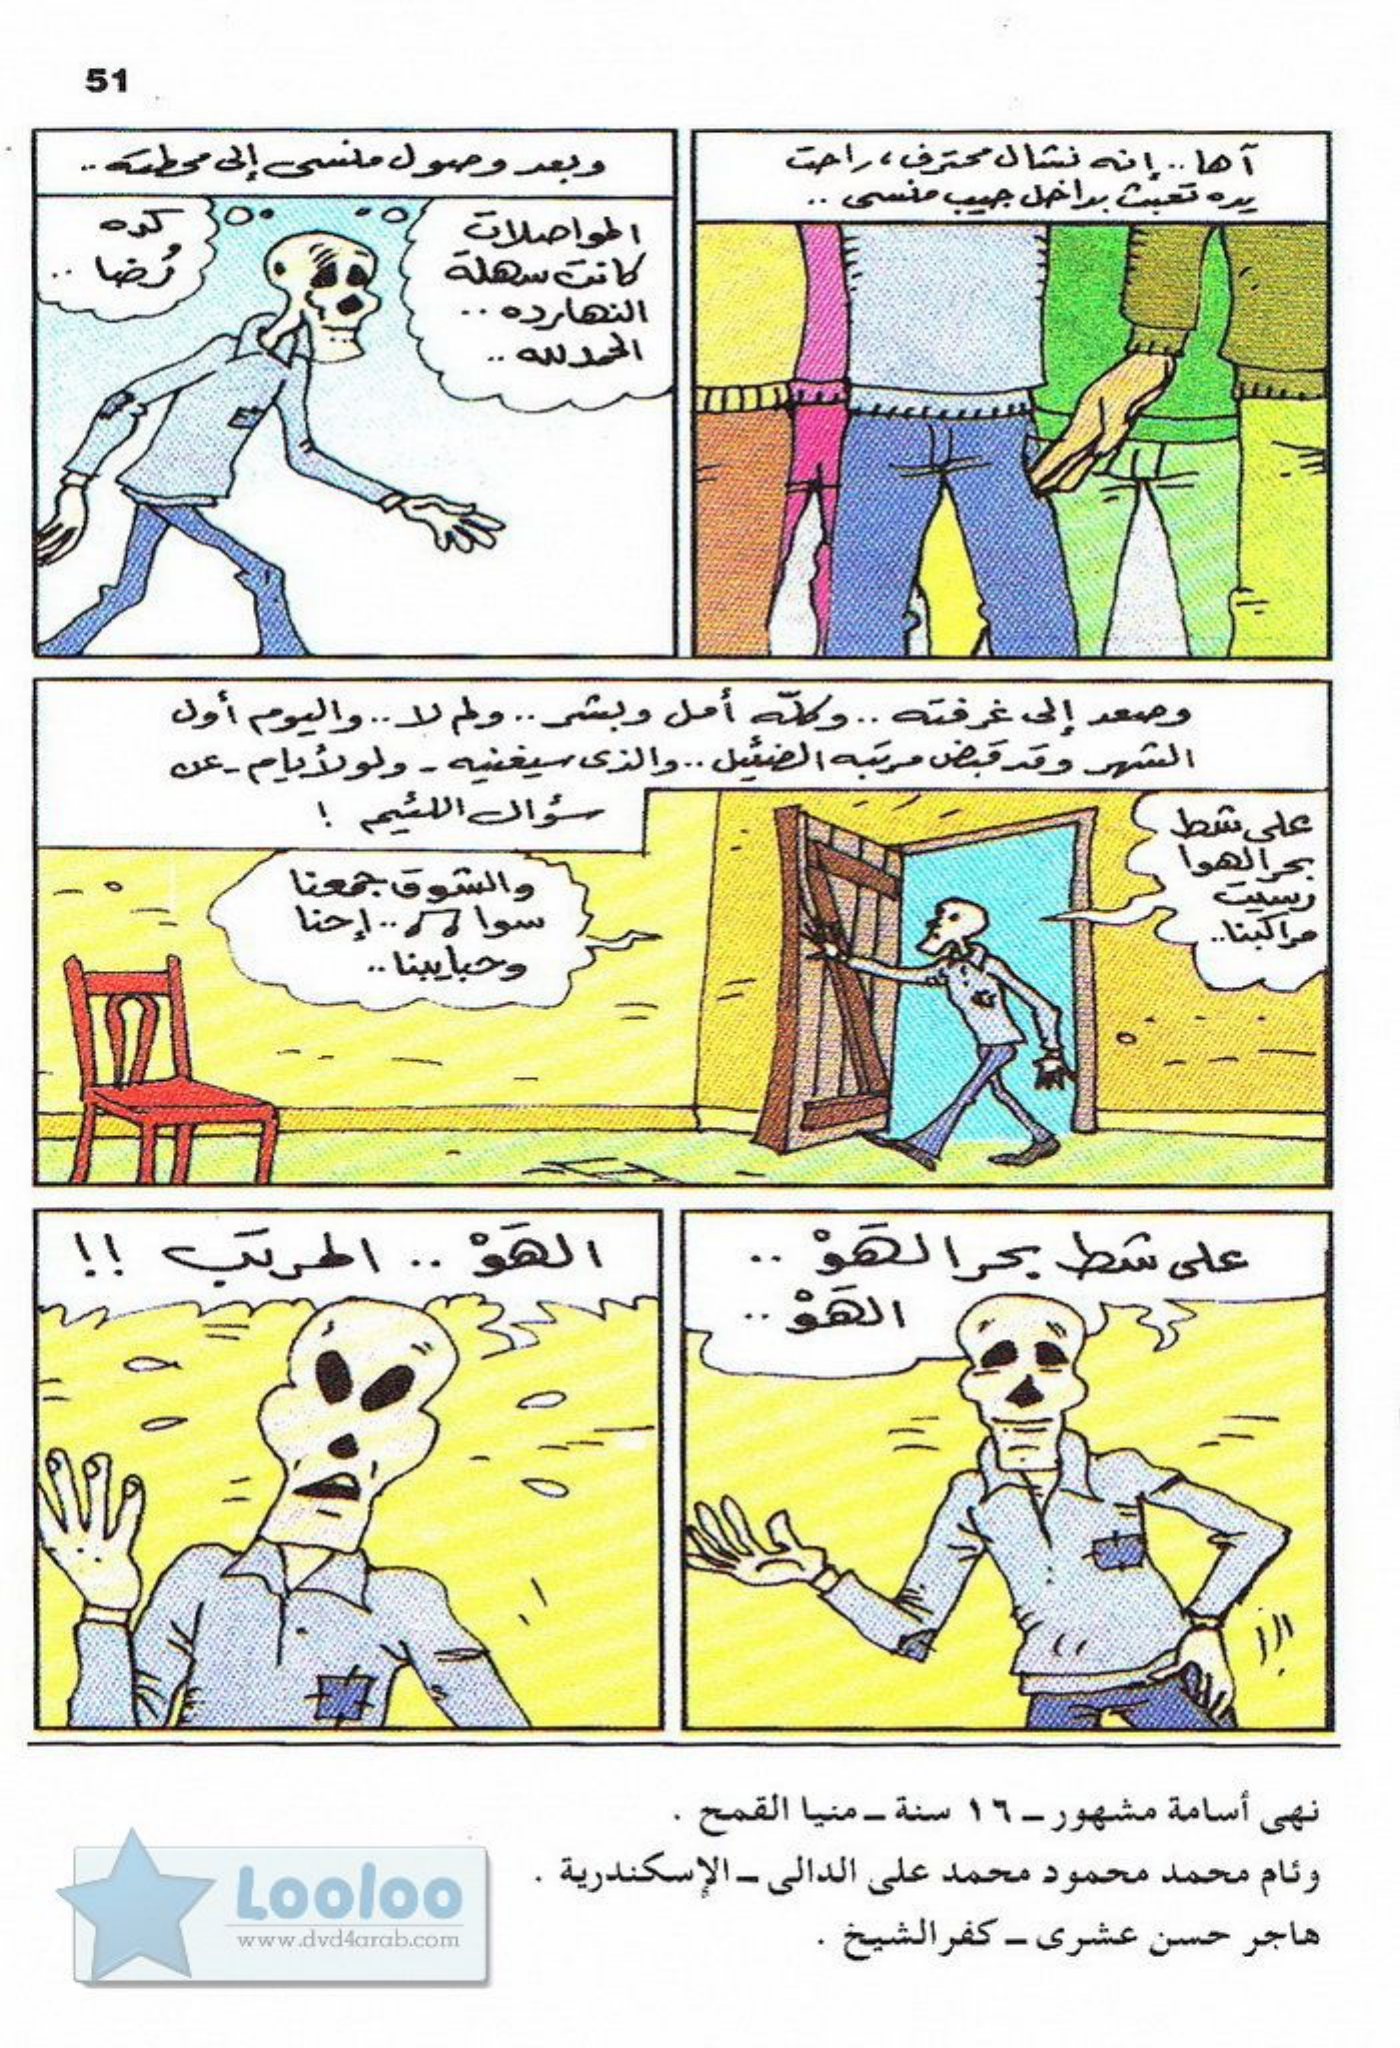 51
آها.. إنه نشال محترف، راحت
يده تعبث بداخل جيب منسى ..
وبعد وصول منسى إلى محطته ..
المواصلات
كانت سهلة
النهارده ..
الحمد لله ..
كده
رُضا ..
وصعد إلى غرفته .. وكلّه أمل وبشر .. ولم لا .. واليوم أول
الشهر وقد قبض مرتبه الضئيل .. والذى سيغنيه - ولو لأيام - عن
سؤال اللئيم !
على شط
بحر الهوا
رسيت
مراكبنا..
والشوق جمعنا
سوا .. إحنا
وحبايبنا ..
على شط بحر الهَوْ ..
الهَوْ ..
الهَوْ .. المرتب !!
نهى أسامة مشهور ــ ١٦ سنة ــ منيا القمح .
وئام محمد محمود محمد على الدالى ــ الإسكندرية .
هاجر حسن عشرى ــ كفر الشيخ .
Looloo
www.dvd4arab.com